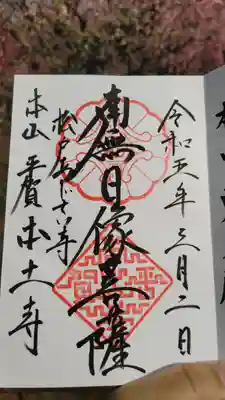 令和五年三月二日
南無日像菩薩
松戸あじさい寺
本山 平賀本土寺